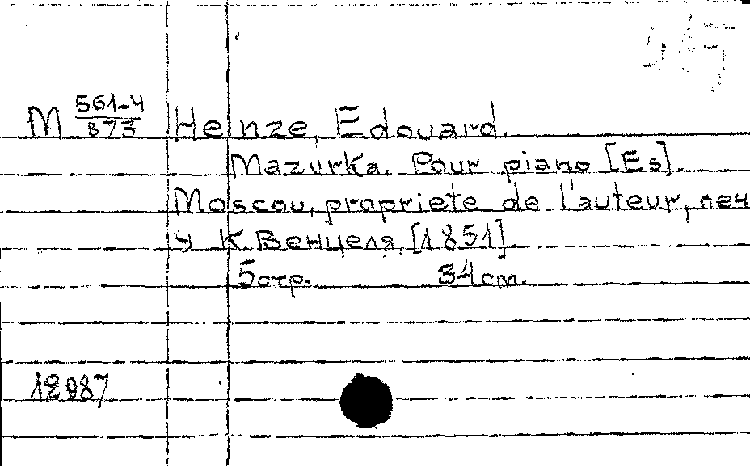 М 561-4/873 Heinze, Edouard.
Mazurka. Pour piano [Es].
Moscou, propriete de l'auteur, печ
у К. Венцеля, [1851]
5 стр. 34 cm.